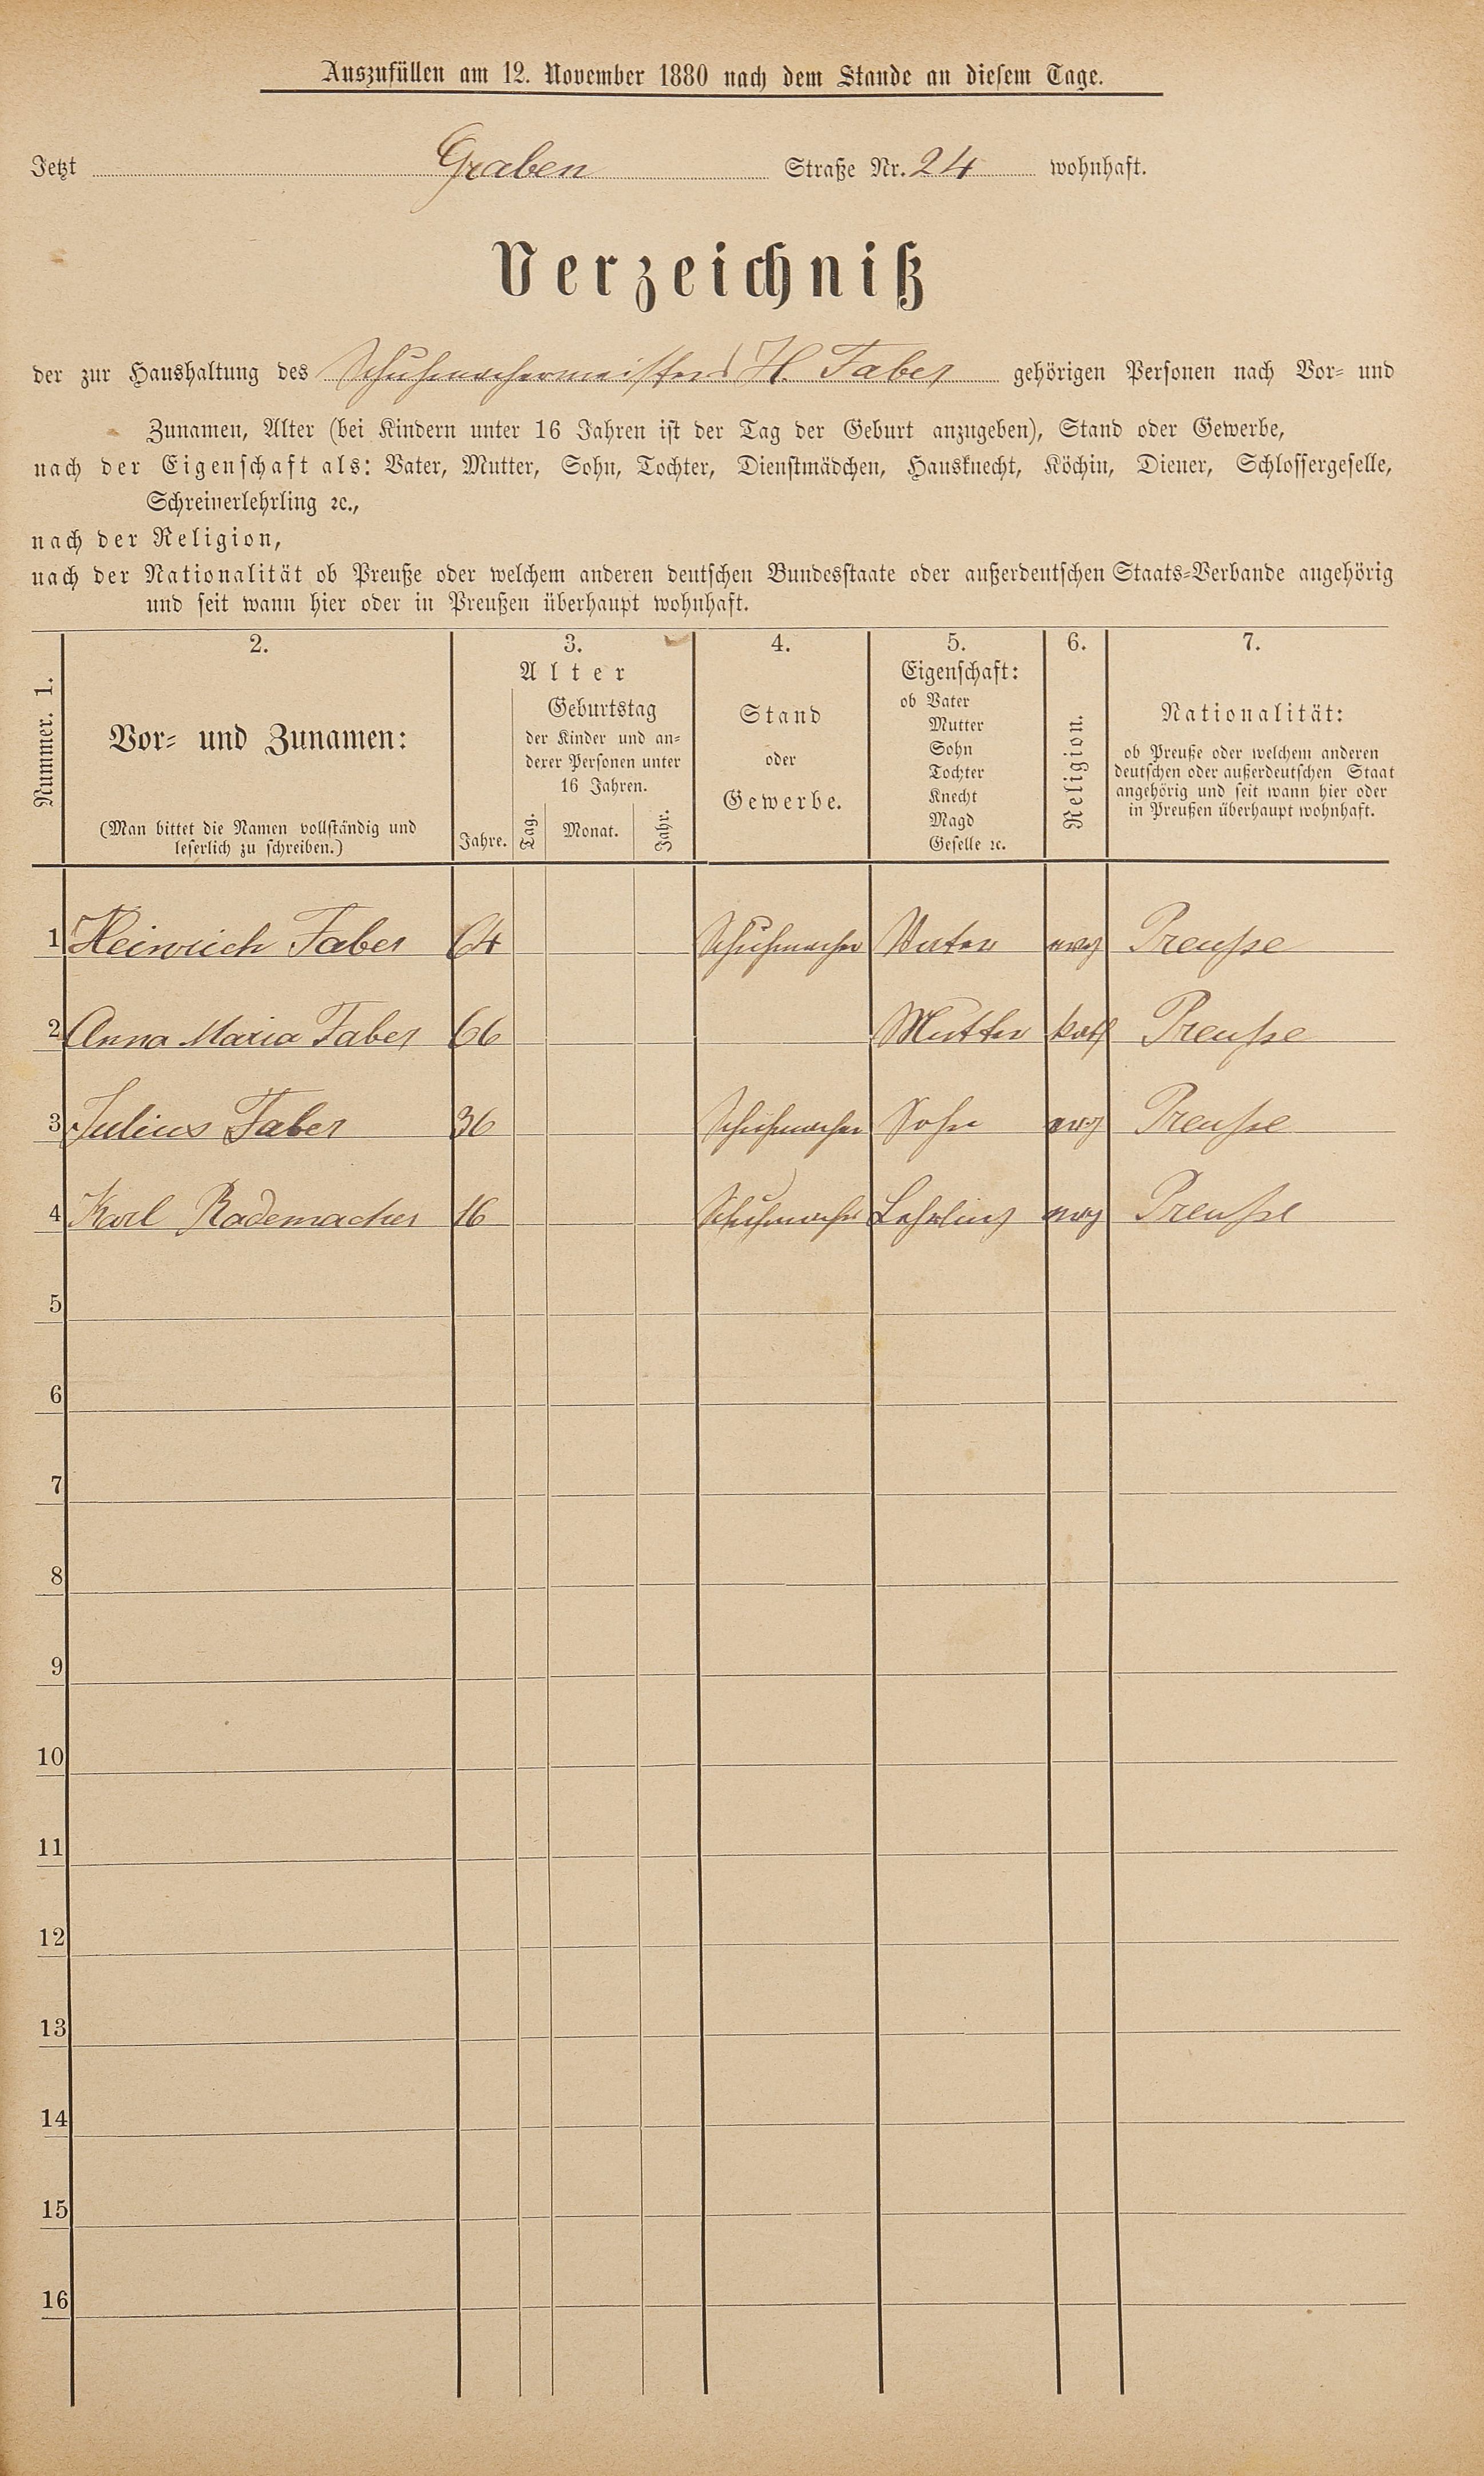 Auszufüllen am 12. November 1880 nach dem Stande an diesem Tage.
Jetzt Graben Straße Nr. 24 wohnhaft.
Verzeichniß
der zur Haushaltung des Schuhmachermeisters H. Faber gehörigen Personen nach Vor- und
Zunamen, Alter (bei Kindern unter 16 Jahren ist der Tag der Geburt anzugeben), Stand oder Gewerbe,
nach der Eigenschaft als: Vater, Mutter, Sohn, Tochter, Dienstmädchen, Hausknecht, Köchin, Diener, Schlossergeselle,
Schreinerlehrling ꝛc.,
nach der Religion,
nach der Nationalität ob Preuße oder welchem anderen deutschen Bundesstaate oder außerdeutschen Staats-Verbande angehörig
und seit wann hier oder in Preußen überhaupt wohnhaft.
Nummer. 1.
2.
Vor- und Zunamen:
(Man bittet die Namen vollständig und
leserlich zu schreiben.)
3.
Alter
Jahre.
Geburtstag
der Kinder und an-
derer Personen unter
16 Jahren.
Tag. Monat. Jahr.
4.
Stand
oder
Gewerbe.
5.
Eigenschaft:
ob Vater
Mutter
Sohn
Tochter
Knecht
Magd
Geselle ꝛc.
6.
Religion.
7.
Nationalität:
ob Preuße oder welchem anderen
deutschen oder außerdeutschen Staat
angehörig und seit wann hier oder
in Preußen überhaupt wohnhaft.
1 Heinrich Faber 64 Schuhmacher Vater evg Preuße
2 Anna Maria Faber 66 Mutter kath Preuße
3 Julius Faber 36 Schuhmacher Sohn evg Preuße
4 Karl Rademacher 16 Schuhmacher Lehrling evg Preuße
5
6
7
8
9
10
11
12
13
14
15
16